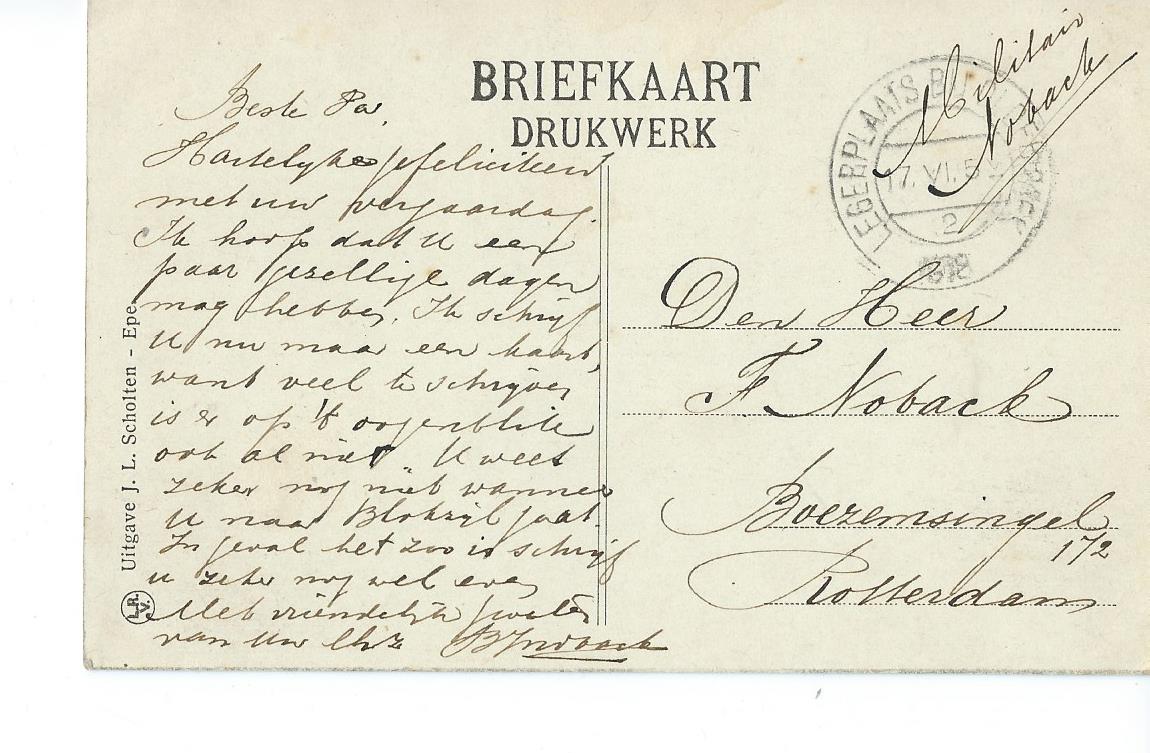 BRIEFKAART
DRUKWERK
Militair
Noback
LEGERPLAATS B
17.VI.5
2
1918
Beste Pa,
Hartelyke gefeliciteerd
met uw verjaardag.
Ik hoop dat U een
paar gezellige dagen
mag hebben. Ik schrijf
U nu maar een kaart,
want veel te schrijven
is er op 't oogenblik
ook al niet. U weet
zeker nog niet wanneer
U naar Blokzijl gaat.
In geval het zoo is schrijf
u zeker nog wel even
Met vriendelijke groeten
van Uw Noback
Den Heer
F. Noback
Boezemsingel
172
Rotterdam
Uitgave J. L. Scholten - Epe.
L.R.
V.